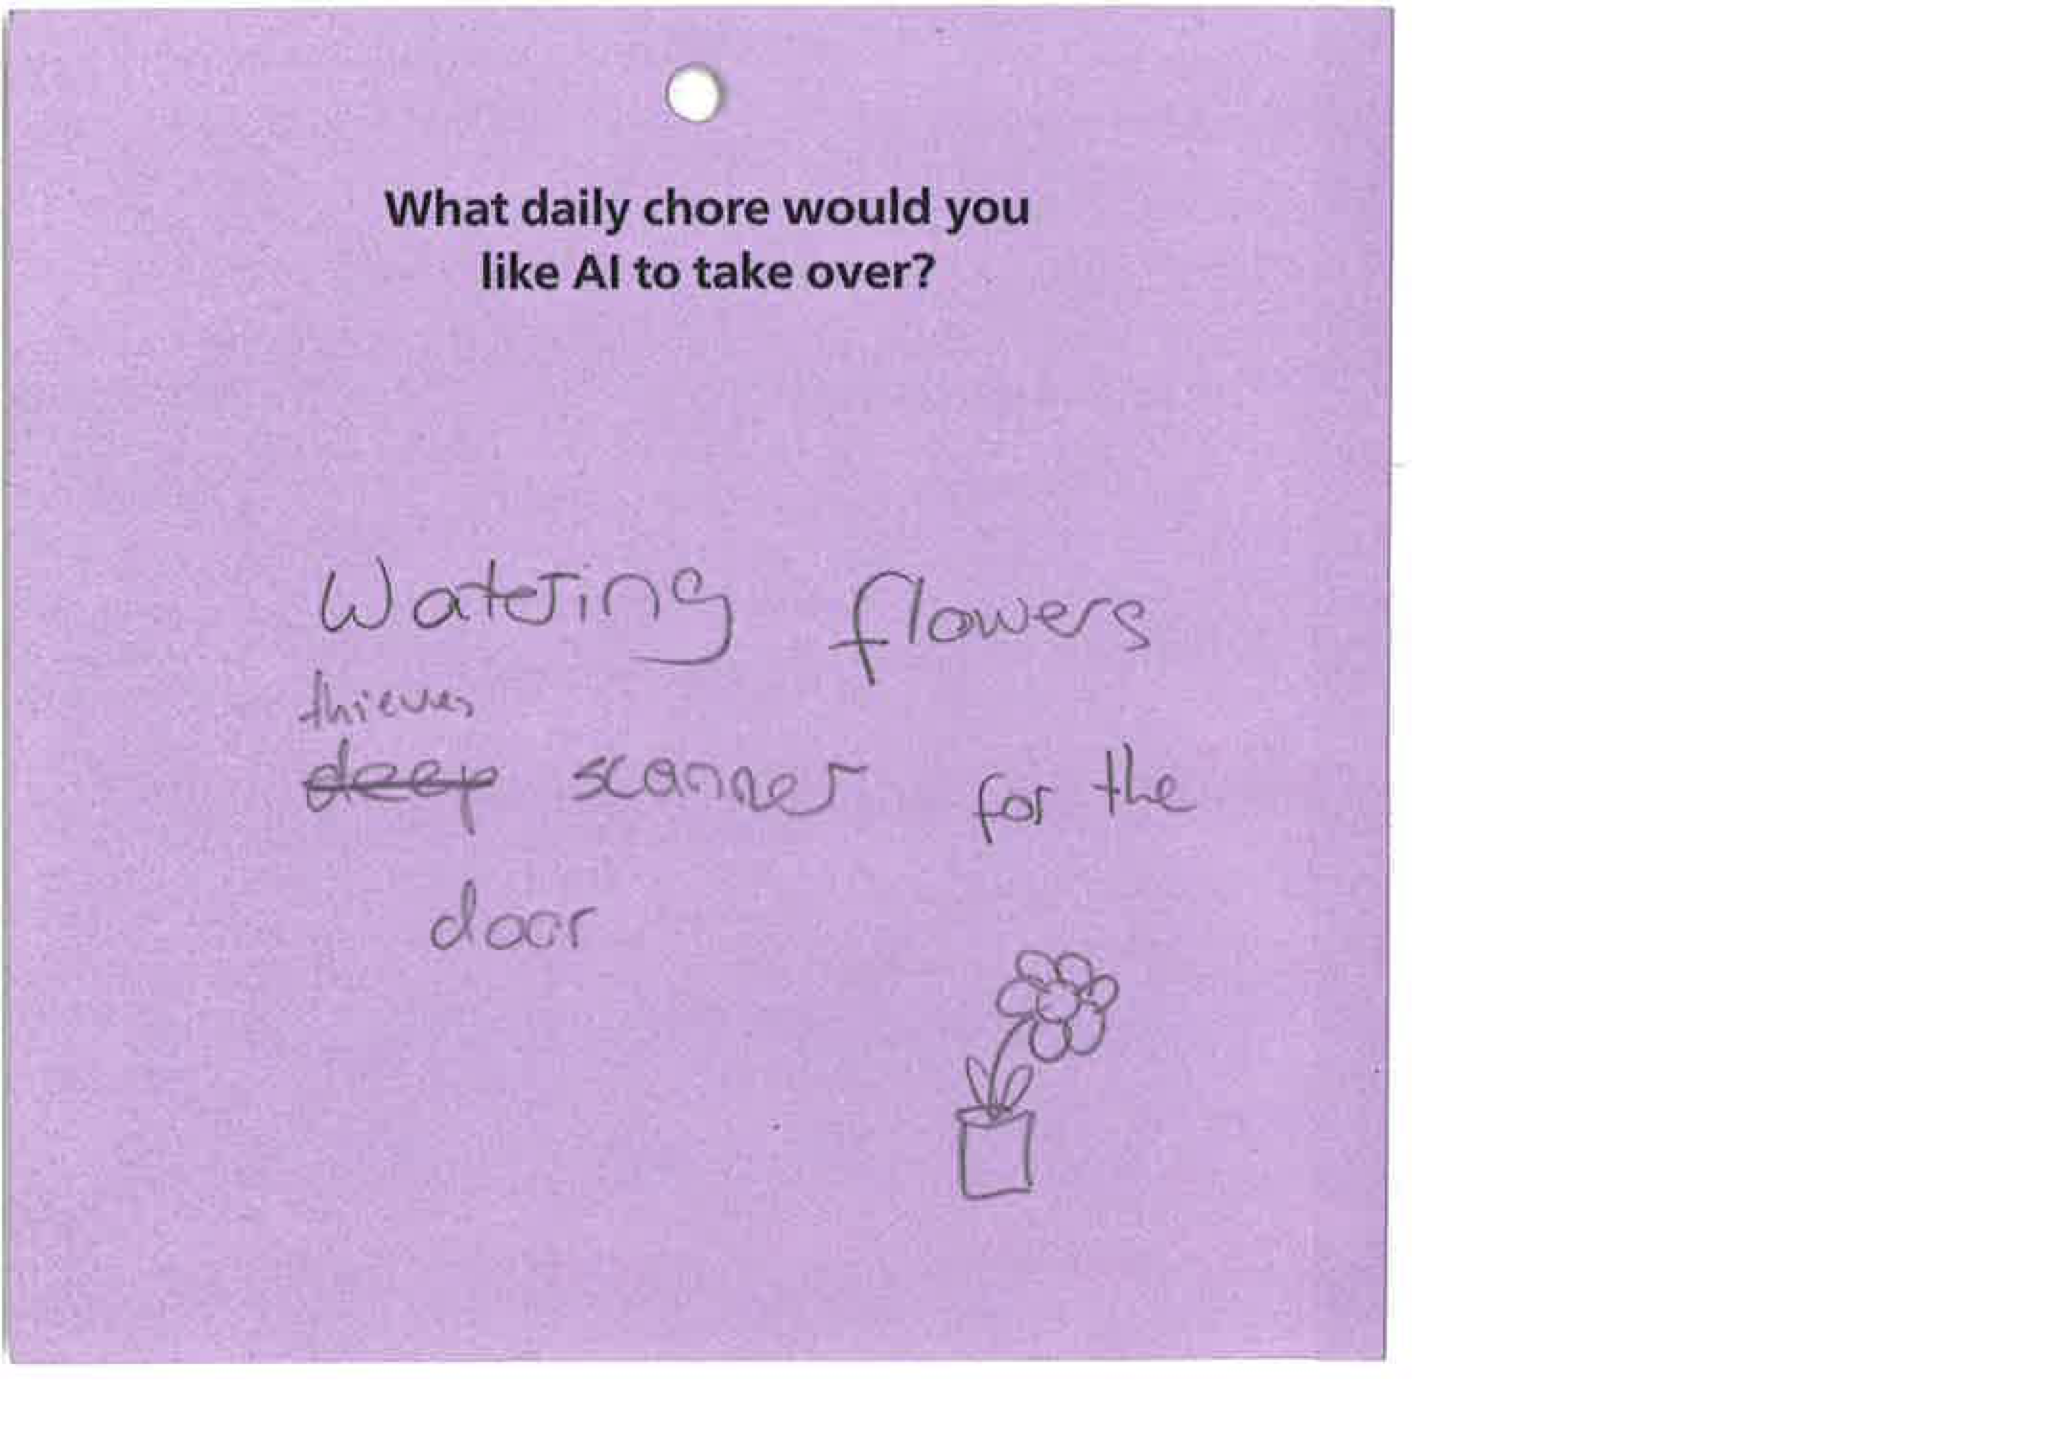 What daily chore would you
like AI to take over?
Watering flowers
thieves
deep scanner for the
door